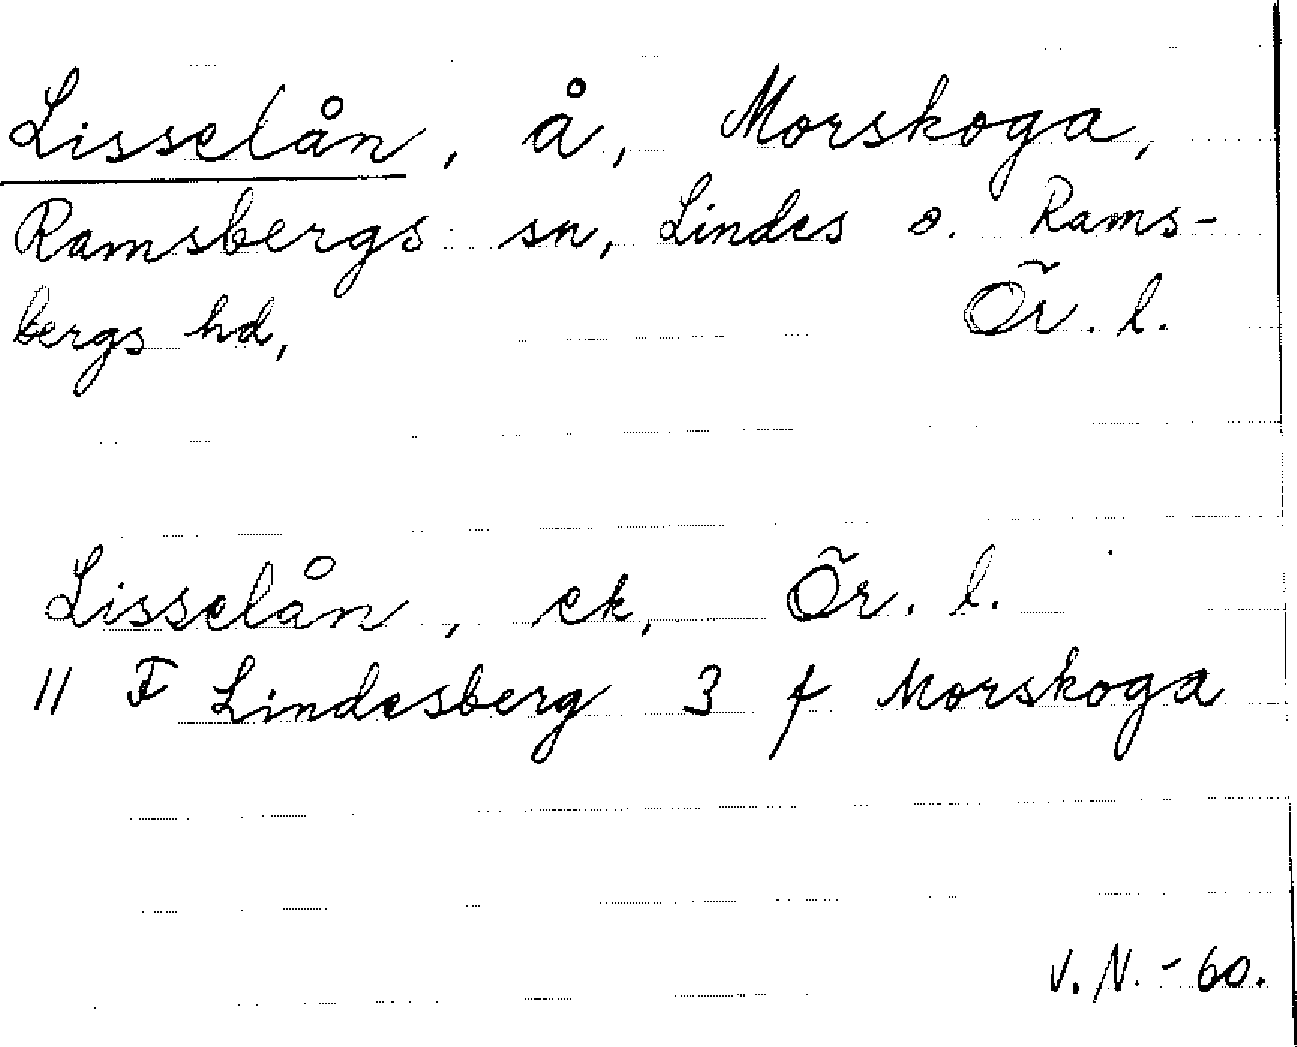 Lisselån, å, Morskoga,
Ramsbergs sn, Lindes o. Rams-
bergs hd, Ör. l.
Lisselån, ek, Ör. l.
11 F Lindesberg 3 f Morskoga
V. N. - 60.